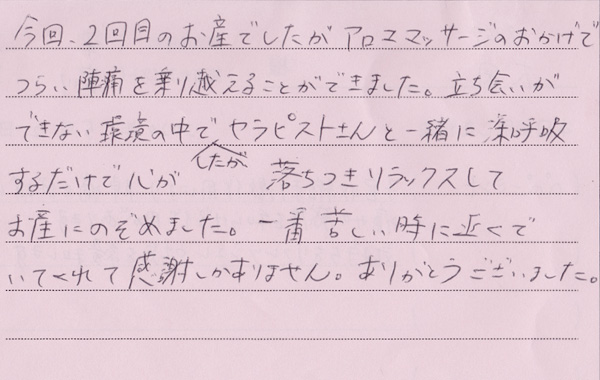 今回、2回目のお産でしたがアロママッサージのおかげで
つらい陣痛を乗り越えることができました。立ち会いが
できない環境の中でしたがセラピストさんと一緒に深呼吸
するだけで心が落ちつきリラックスして
お産にのぞめました。一番苦しい時に近くで
いてくれて感謝しかありません。ありがとうございました。